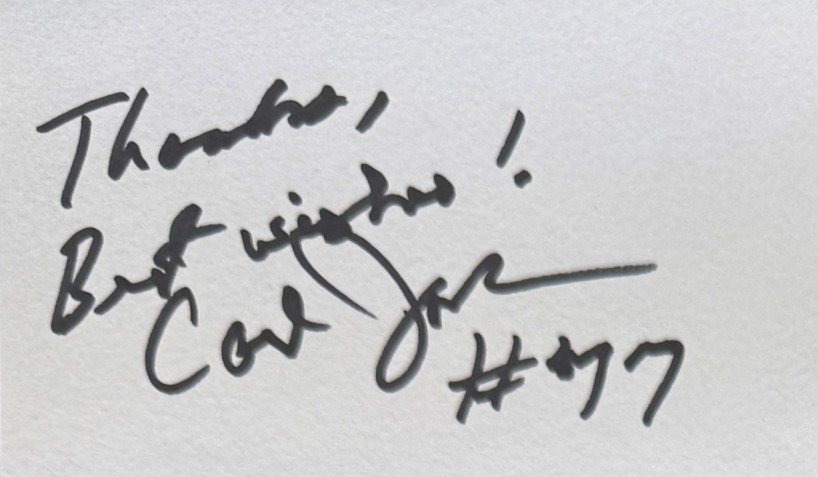 Thanks,
Best wishes!
Carl
#77